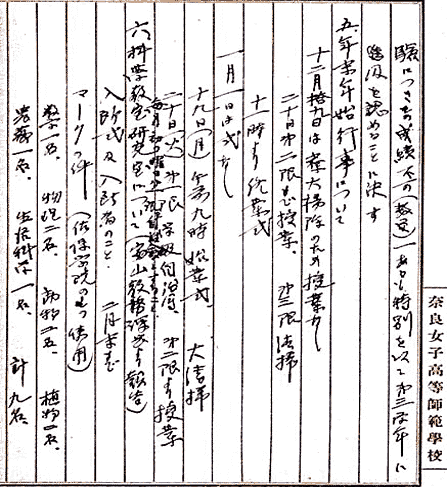 験につきその成績不可(数更)一あるも特別を以て第三学年に
進級を認めることに決す
五、年末年始行事について
十二月拾九日は寮大掃除のため授業なし
二十日第二限まで授業、第三限清掃
十一時より終業式
一月一日は式なし
十九日(月)午前九時始業式 大清掃
二十日(火)第一限 第二限より授業
六、科学教室研究室について(西山教務課長より報告)
入所式及入所者のこと、二月まで
マークの件(保学院のもの使用)
数学一名、物理二名、動物一名、植物一名、
一名、生活科学一名、計九名、
奈良女子高等師範學校